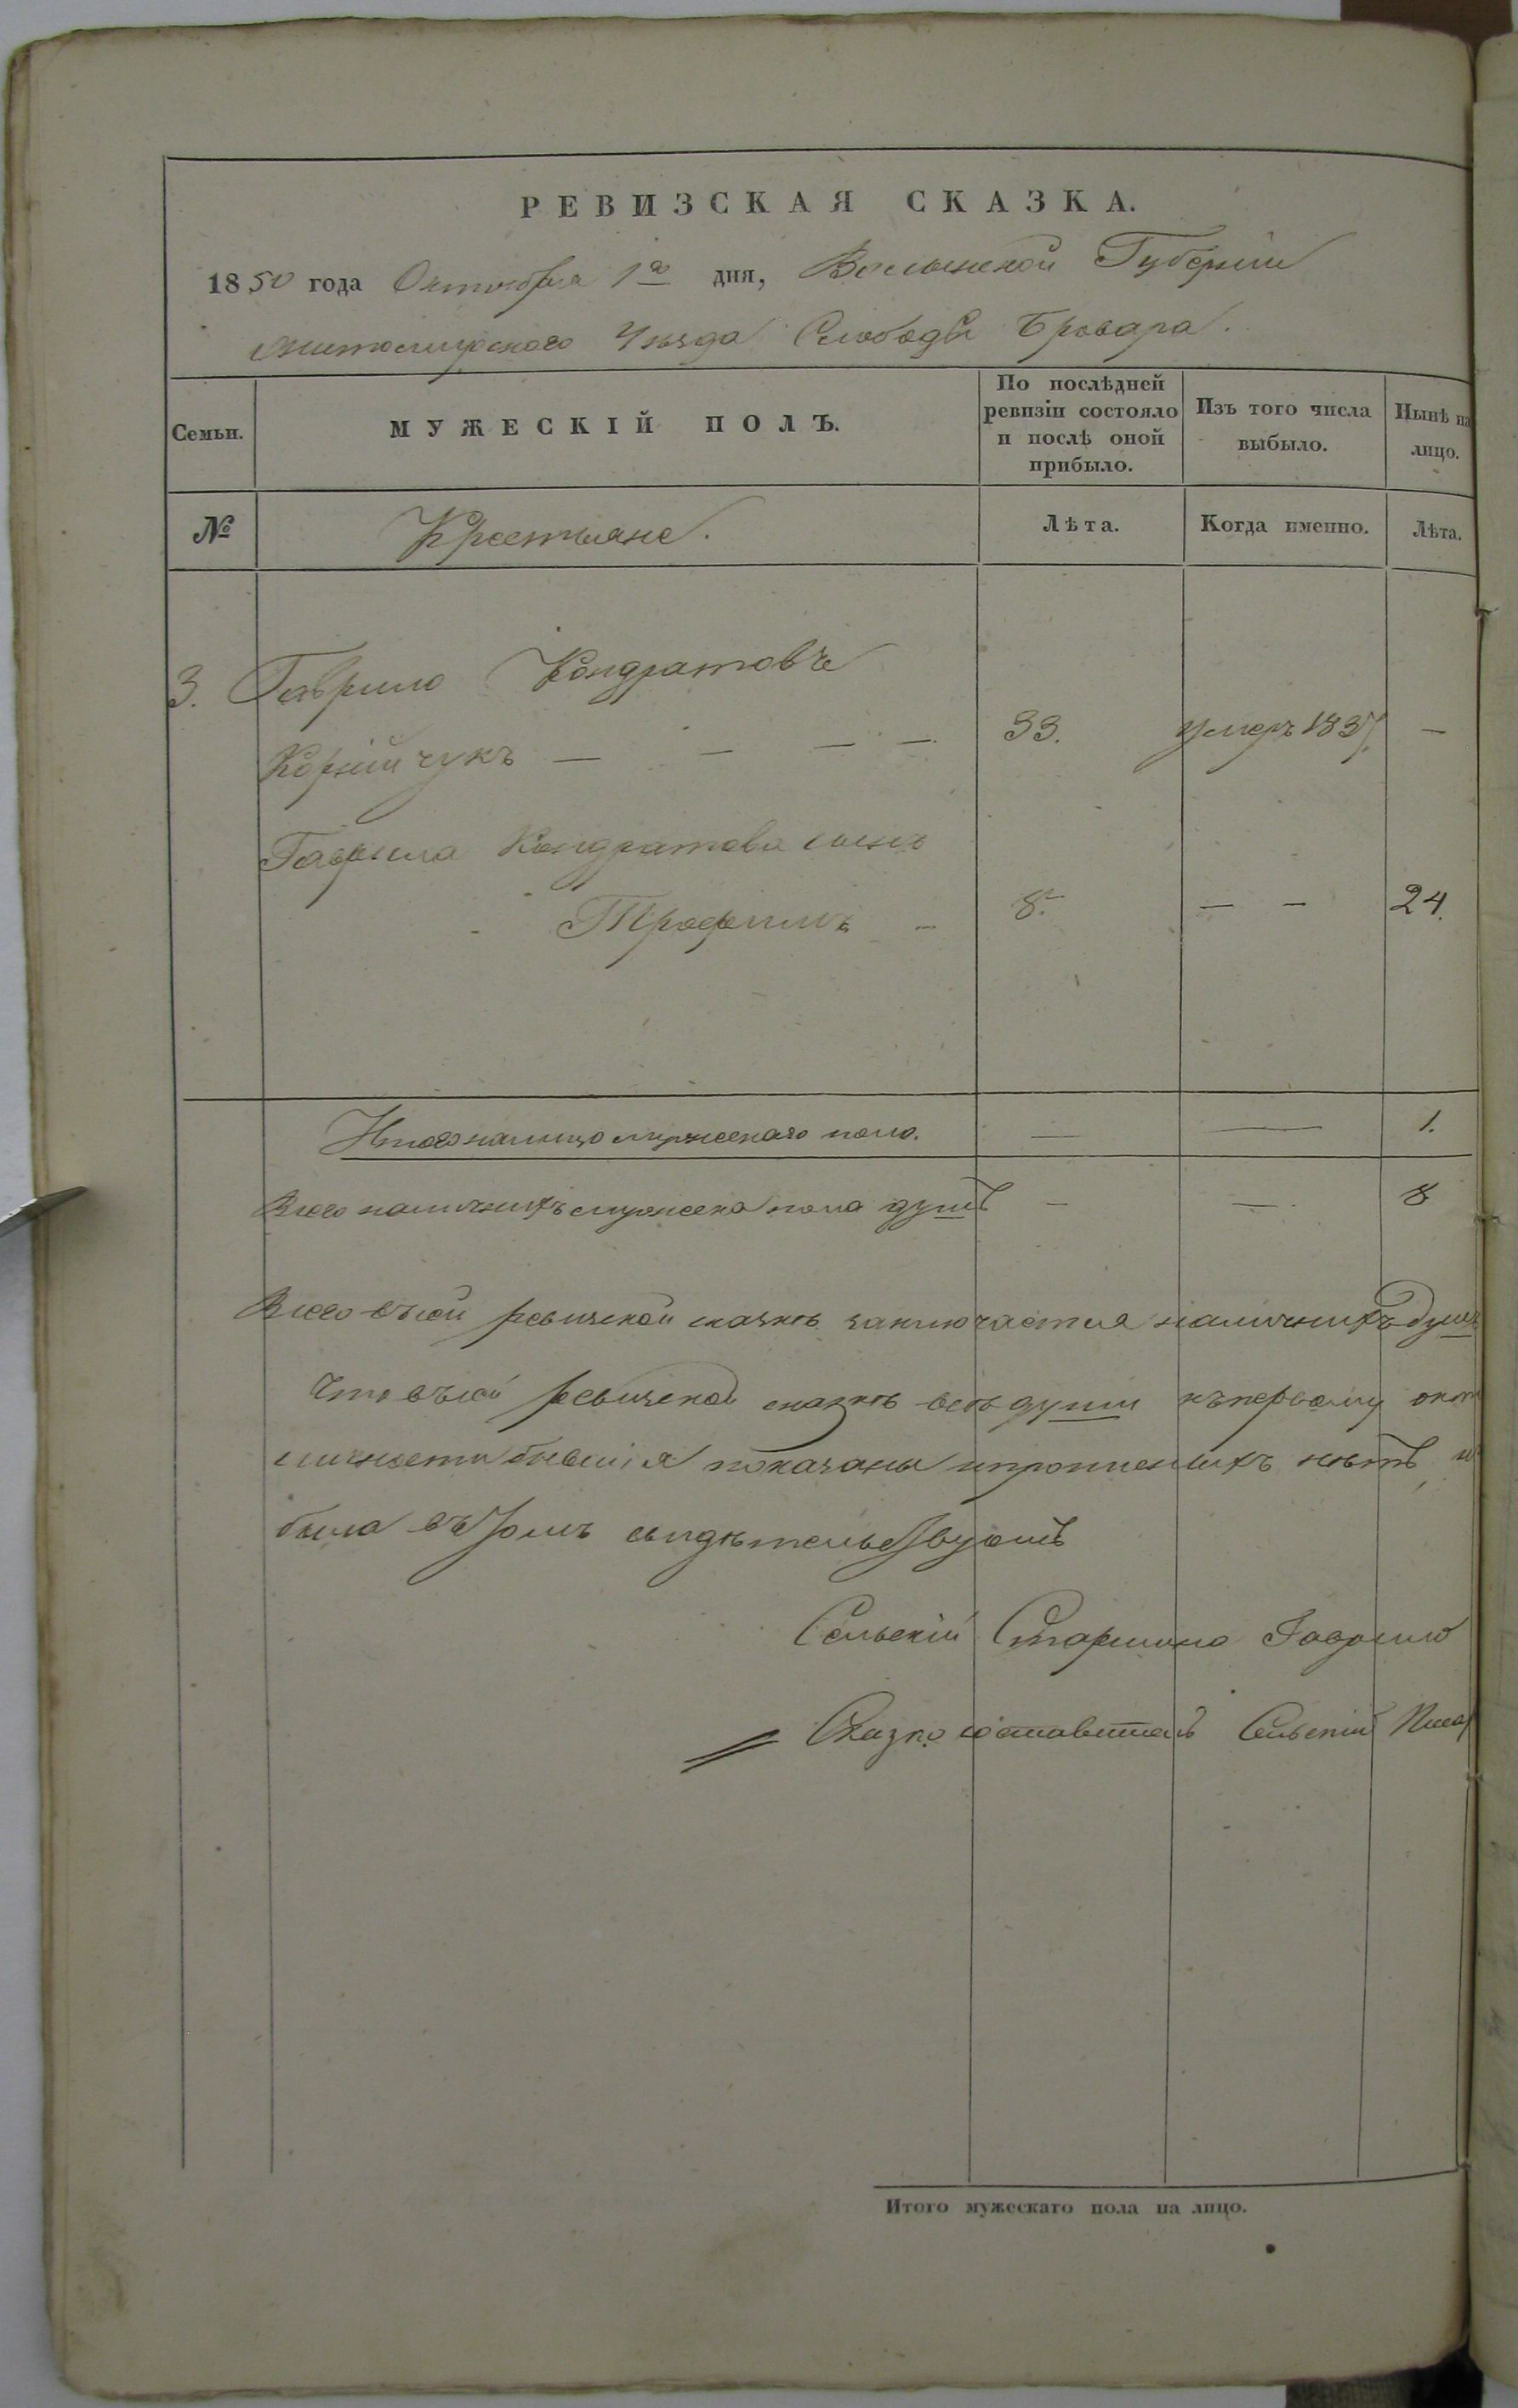 РЕВИЗСКАЯ СКАЗКА.
1850 года Октября 1го дня, Волынской Губерніи
Житомирского Уѣзда Слободы Бровара.
Семьи.
МУЖЕСКІЙ ПОЛЪ.
По послѣдней
ревизіи состояло
и послѣ оной
прибыло.
Изъ того числа
выбыло.
Нынѣ на
лицо.
№
Крестьяне.
Лѣта.
Когда именно.
Лѣта.
3. Гаврило Кондратовъ
Корнійчукъ — — — — 33. умеръ 1837. —
Гаврила Кондратова сынъ
Трофимъ — 8. — — 24.
Итого налицо мужескаго пола. — — 1.
Всего наличныхъ мужеска пола душъ — — 8
Всего въ сей ревизской сказкѣ заключается наличныхъ душъ
Что въ сей ревизской сказкѣ всѣ души къ первому окт
личности бывшія показаны и прописныхъ нѣтъ
была въ томъ свидѣтельствуютъ
Сельскій Старшина Гаврило
Сказку составилъ Сельскій Писар
Итого мужескаго пола на лицо.